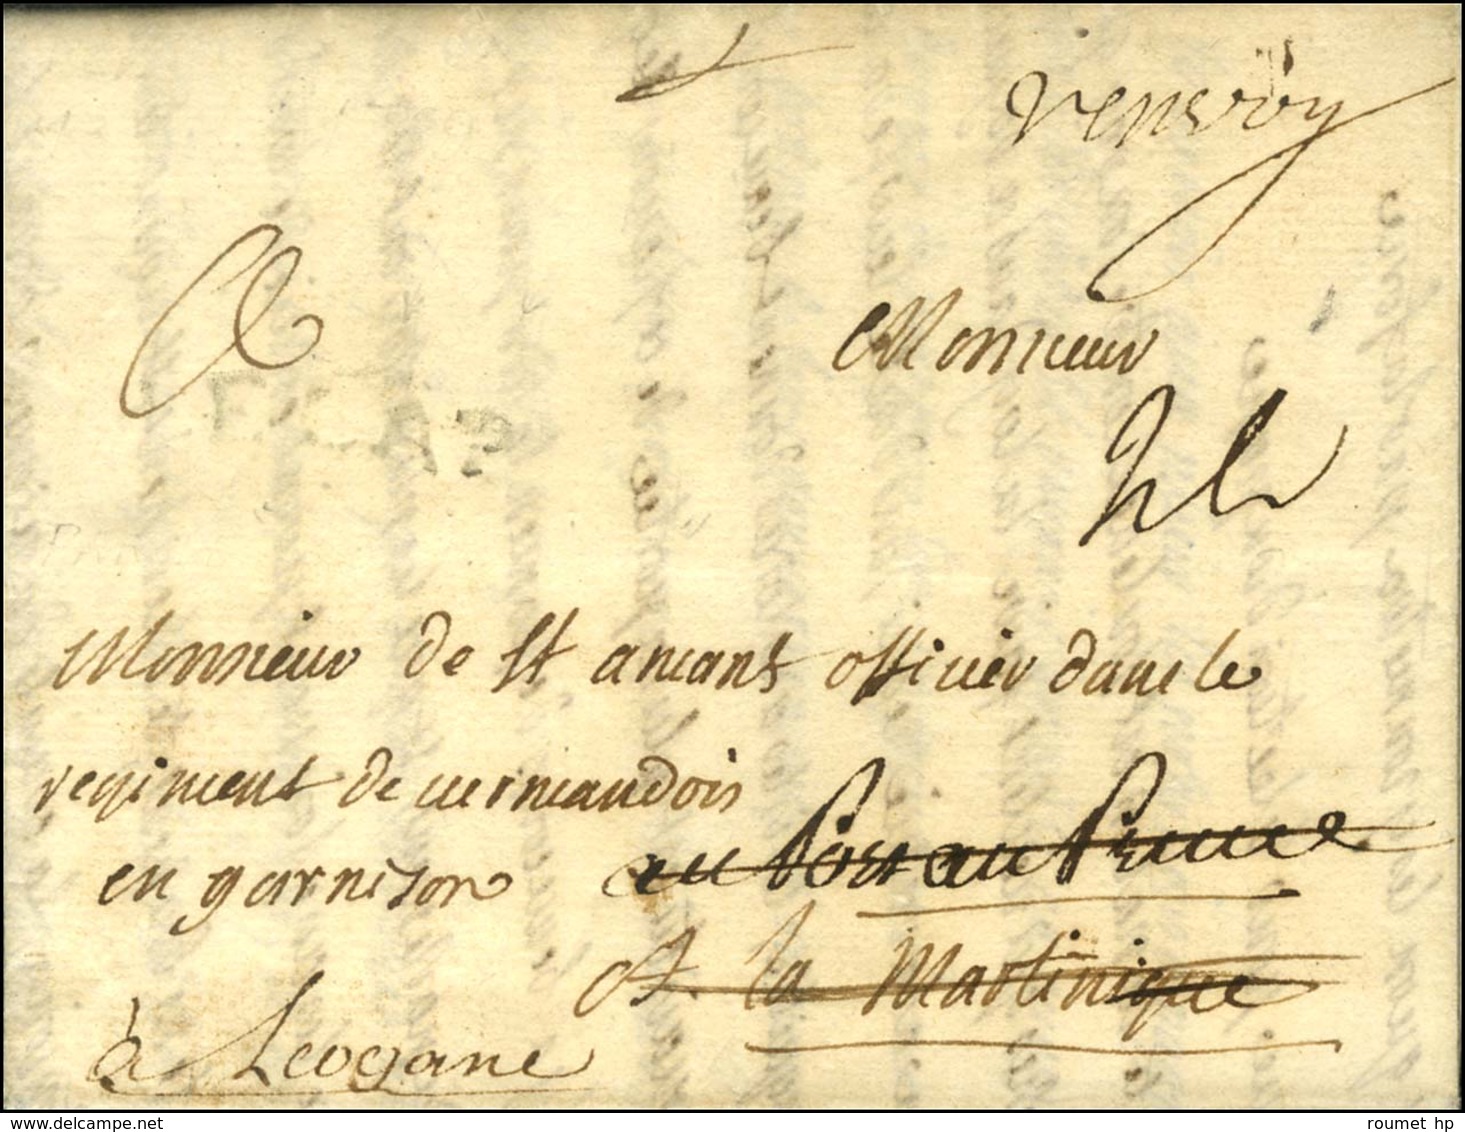 renvoy
A
Monsieur
Monsieur de St amant officier dans le
regiment de vermandois
en garnison au Port au Prince
A la Martinique
à Leogane
roumet hp